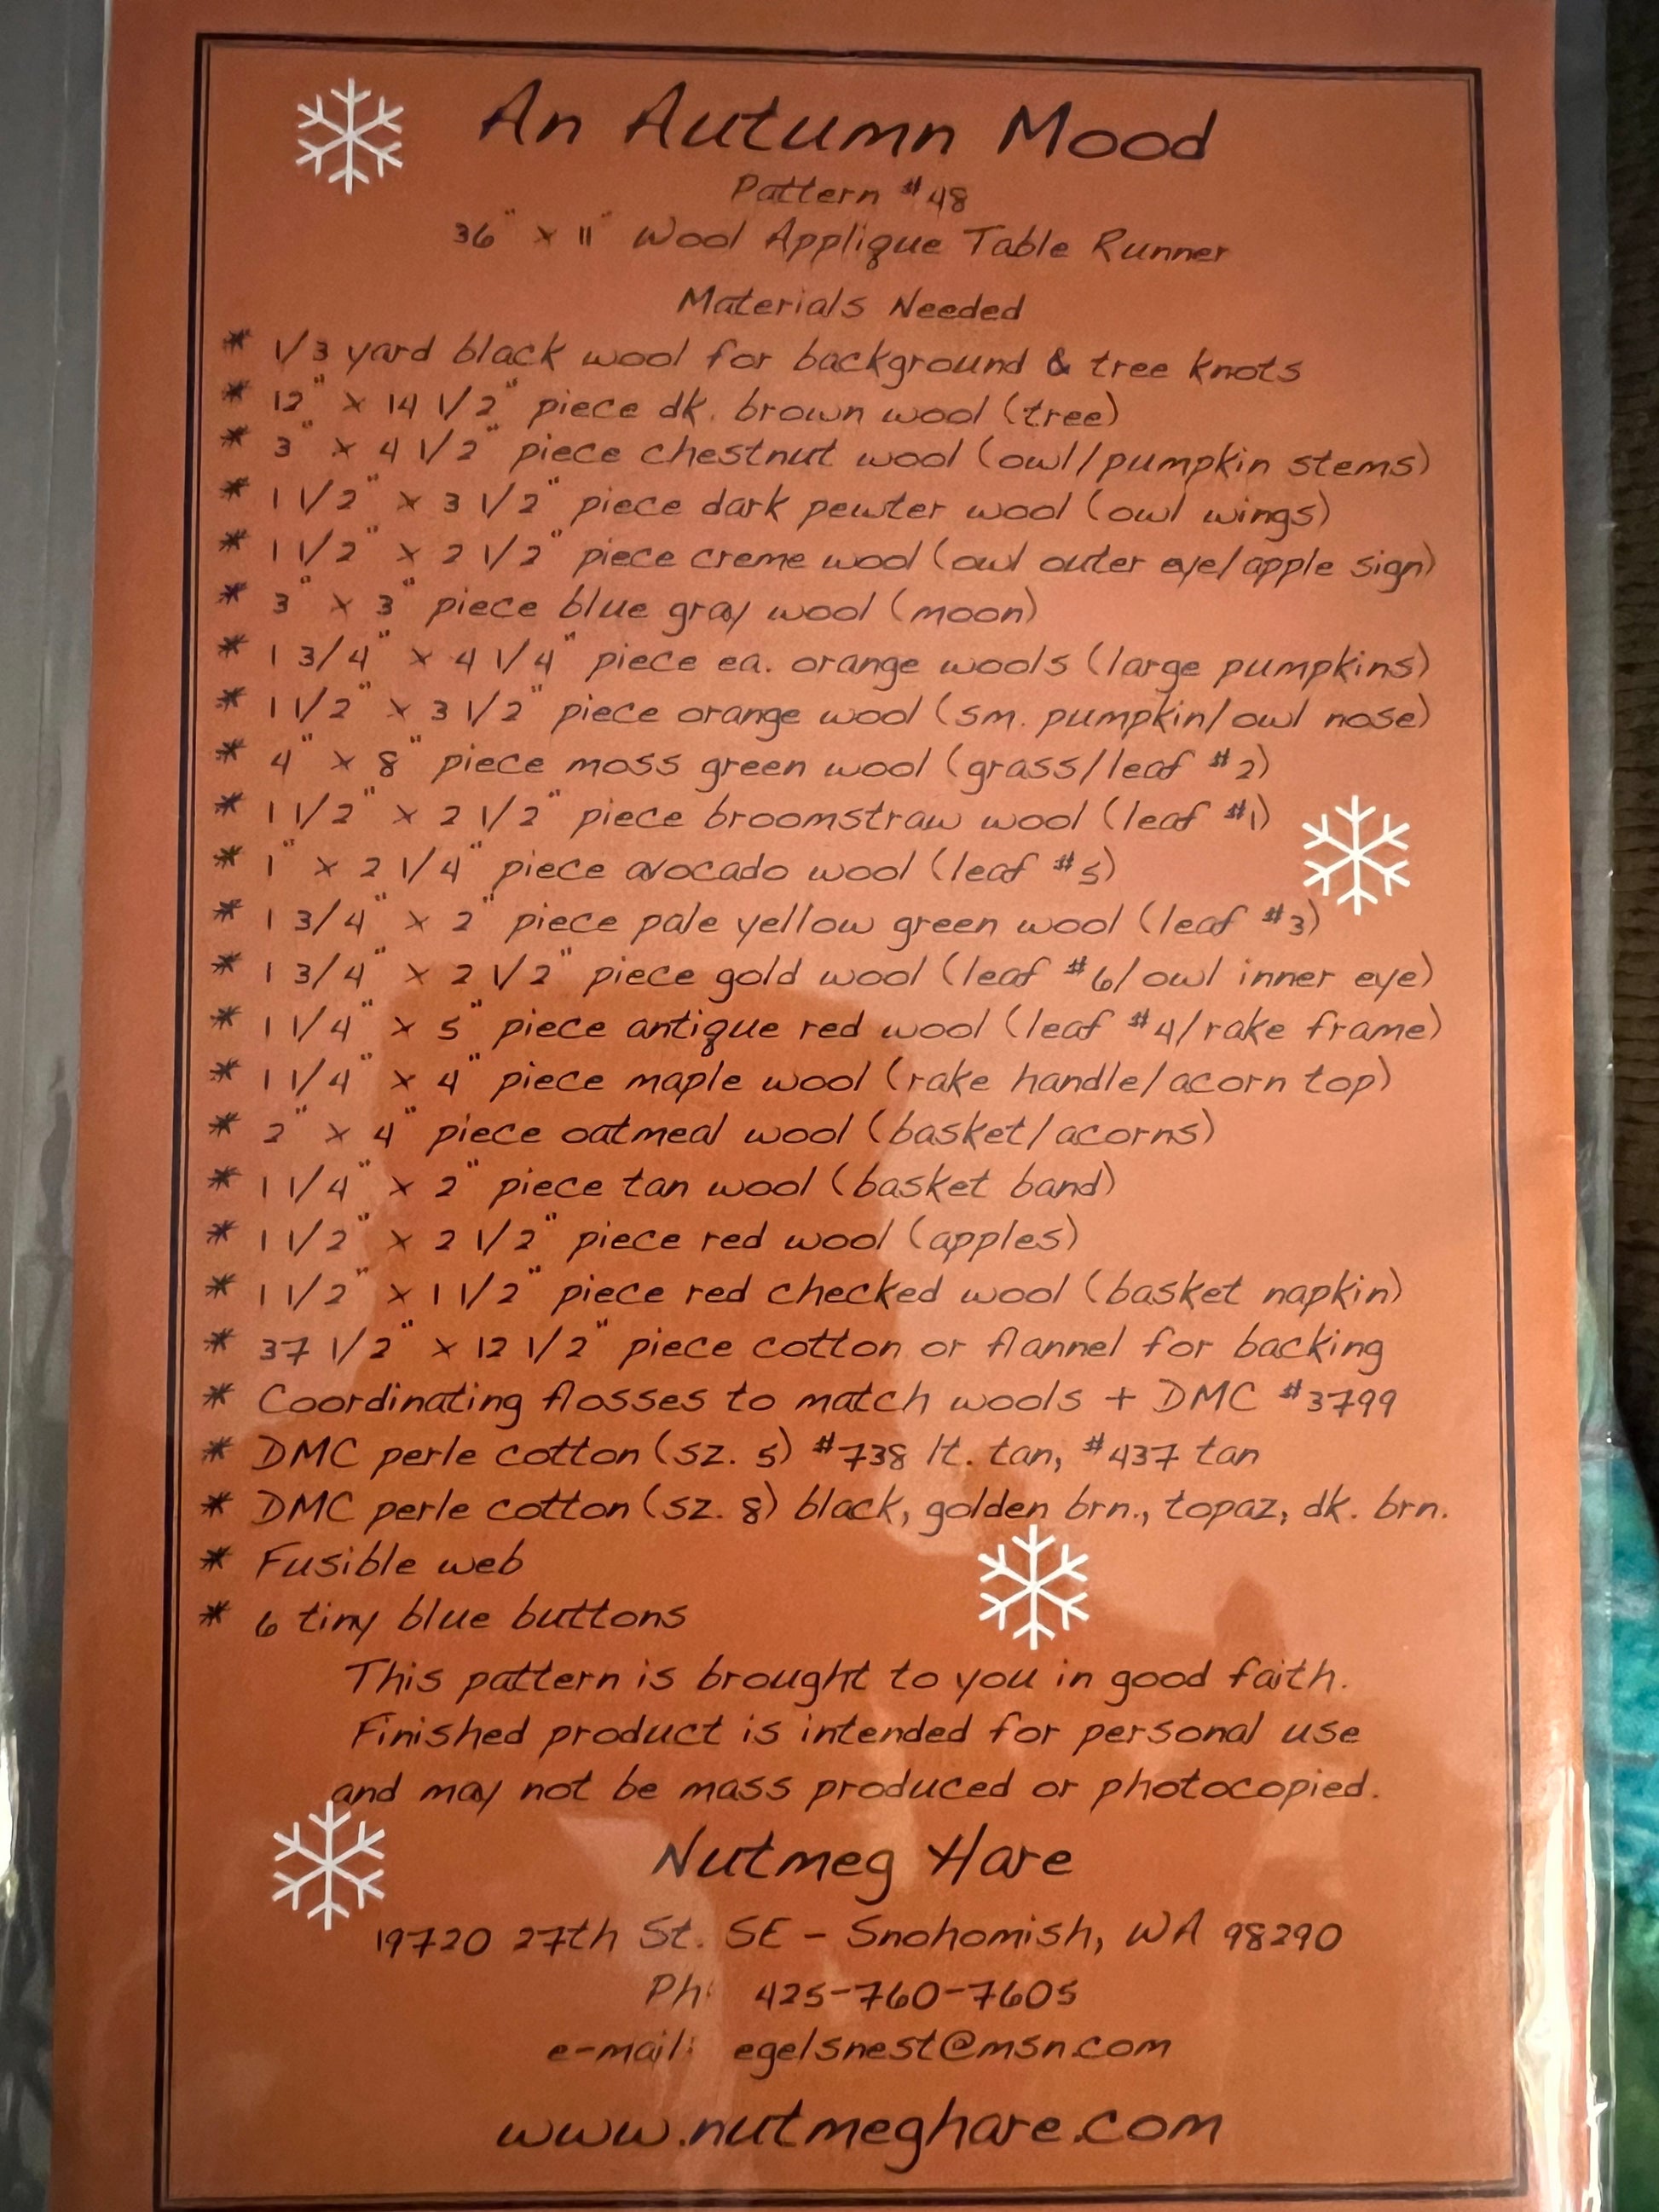 An Autumn Mood
Pattern #48
36" x 11" Wool Applique Table Runner
Materials Needed
* 1/3 yard black wool for background & tree knots
* 12" x 14 1/2" piece dk. brown wool (tree)
* 3" x 4 1/2" piece chestnut wool (owl/pumpkin stems)
* 1 1/2" x 3 1/2" piece dark pewter wool (owl wings)
* 1 1/2" x 2 1/2" piece creme wool (owl outer eye/apple sign)
* 3" x 3" piece blue gray wool (moon)
* 1 3/4" x 4 1/4" piece ea. orange wools (large pumpkins)
* 1 1/2" x 3 1/2" piece orange wool (sm. pumpkin/owl nose)
* 4" x 8" piece moss green wool (grass/leaf #2)
* 1 1/2" x 2 1/2" piece broomstraw wool (leaf #1)
* 1" x 2 1/4" piece avocado wool (leaf #5)
* 1 3/4" x 2" piece pale yellow green wool (leaf #3)
* 1 3/4" x 2 1/2" piece gold wool (leaf #6/owl inner eye)
* 1 1/4" x 5" piece antique red wool (leaf #4/rake frame)
* 1 1/4" x 4" piece maple wool (rake handle/acorn top)
* 2" x 4" piece oatmeal wool (basket/acorns)
* 1 1/4" x 2" piece tan wool (basket band)
* 1 1/2" x 2 1/2" piece red wool (apples)
* 1 1/2" x 1 1/2" piece red checked wool (basket napkin)
* 37 1/2" x 12 1/2" piece cotton or flannel for backing
* Coordinating flosses to match wools + DMC #3799
* DMC perle cotton (sz. 5) #738 lt. tan, #437 tan
* DMC perle cotton (sz. 8) black, golden brn., topaz, dk. brn.
* Fusible web
* 6 tiny blue buttons
This pattern is brought to you in good faith.
Finished product is intended for personal use
and may not be mass produced or photocopied.
Nutmeg Hare
19720 27th St. SE - Snohomish, WA 98290
Ph: 425-760-7605
e-mail: egelsnest@msn.com
www.nutmeghare.com